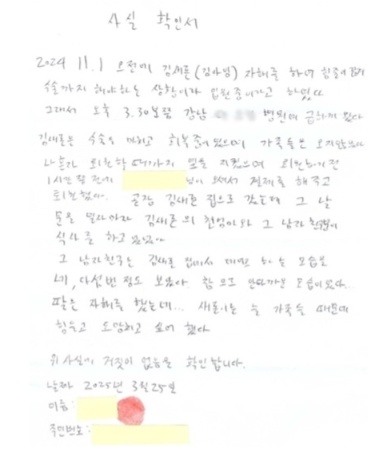 사실 확인서
2024 11.1 오전에 김새론(김아임) 자해를 하여
수술까지 해야하는 상황이라 입원중이라고 하였다
그래서 오후 3.30분쯤 강남 병원에 급하게 갔다
김새론은 수술을 마치고 회복중이었으며 가족들은 오지않았다
나혼자 퇴원할때까지 옆을 지켰으며 퇴원하기전
1시간쯤 전에 님이 와서 결제를 해주고
퇴원했다. 곧장 김새론 집으로 갔는데 그 날
문을 열자마자 김새론의 친엄마와 그 남자친구
식사를 하고 있었다
그 남자친구는 김새론 집에서 대면 하는 모습을
네, 다섯번 정도 보았다
팔은 자해를 했는데... 새론이는 늘 가족들 때문에
힘들고 도망치고 싶어 했다
위 사실이 거짓이 없음을 확인합니다.
날짜 2025년 3월25일
이름:
주민번호: